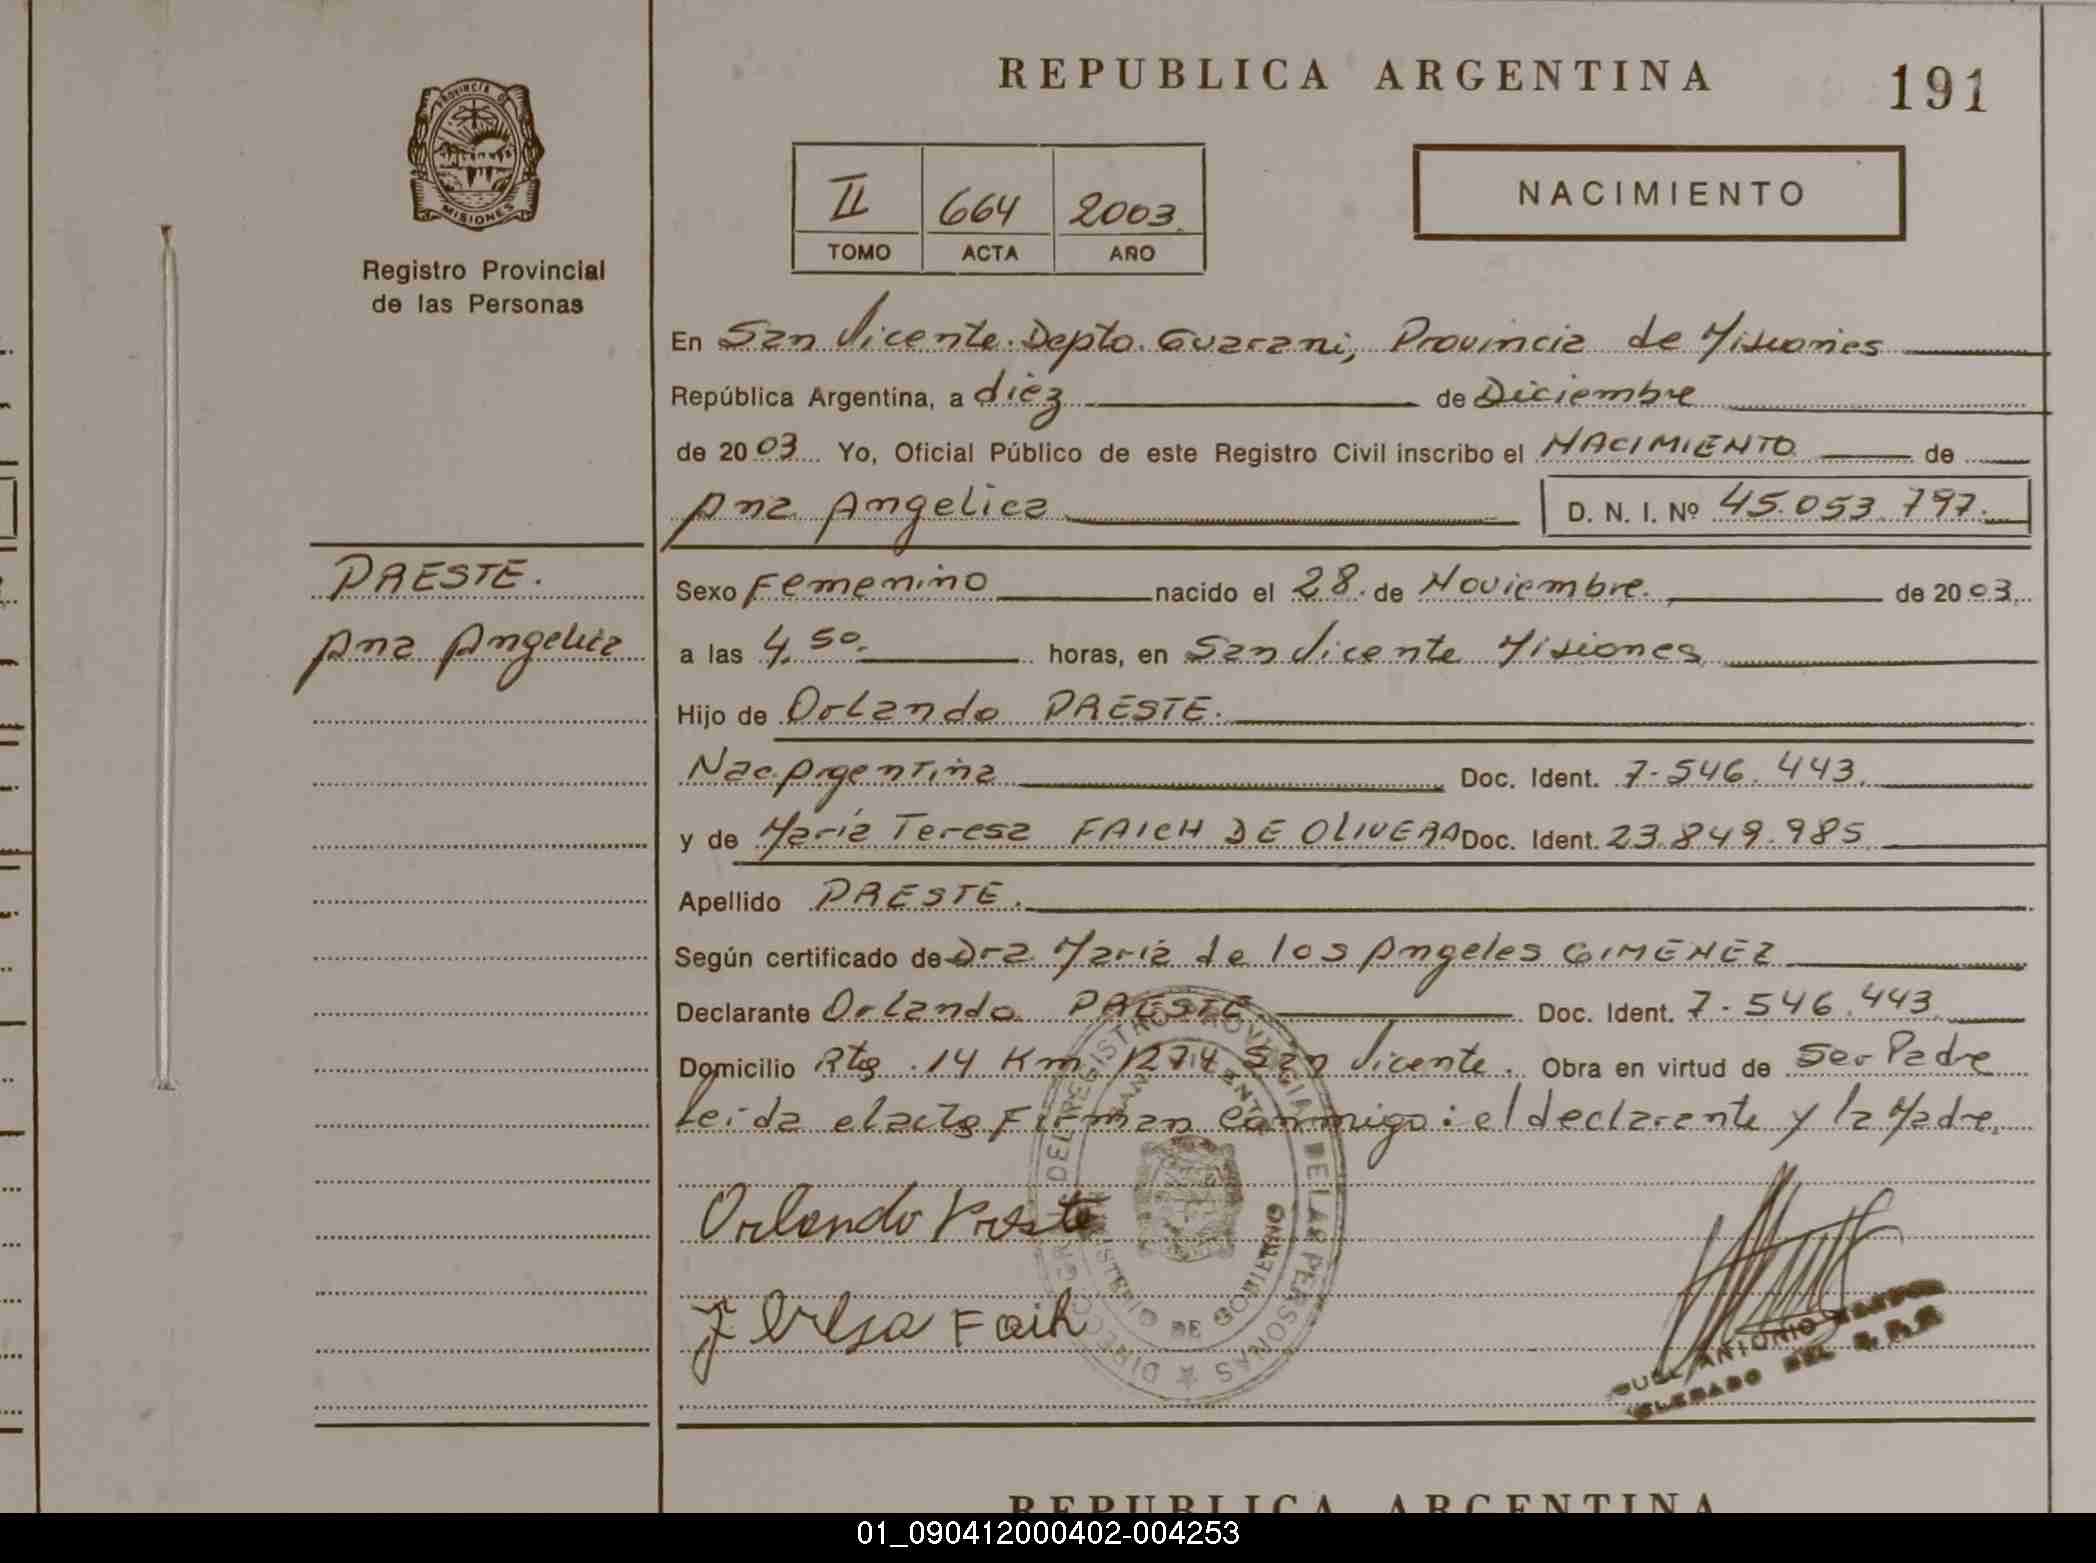 REPUBLICA ARGENTINA
191
PROVINCIA DE
MISIONES
Registro Provincial
de las Personas
II 664 2003.
TOMO ACTA AÑO
NACIMIENTO
En San Vicente. Depto. Guarani, Provincia de Misiones
República Argentina, a diez de Diciembre
de 2003 Yo, Oficial Público de este Registro Civil inscribo el NACIMIENTO de
Ana Angelica D. N. I. Nº 45.053.797.
PRESTE.
Ana Angelica
Sexo Femenino nacido el 28. de Noviembre. de 2003.
a las 4.50. horas, en San Vicente Misiones
Hijo de Orlando PRESTE.
Nac. Argentina Doc. Ident. 7-546.443.
y de María Teresa FAICH DE OLIVERA Doc. Ident. 23.849.985
Apellido PRESTE.
Según certificado de Dra. María de los Angeles GIMENEZ
Declarante Orlando PRESTE Doc. Ident. 7-546.443
Domicilio Rta. 14 Km 1274 San Vicente. Obra en virtud de Ser Padre
Leída el acta Firman conmigo: el declarante y la Madre.
Orlando Preste
DEL REGISTRO PROVINCIAL DE LAS PERSONAS
DE GOBIERNO
Faih
ANTONIO
DEL
REPUBLICA ARGENTINA
01_090412000402-004253